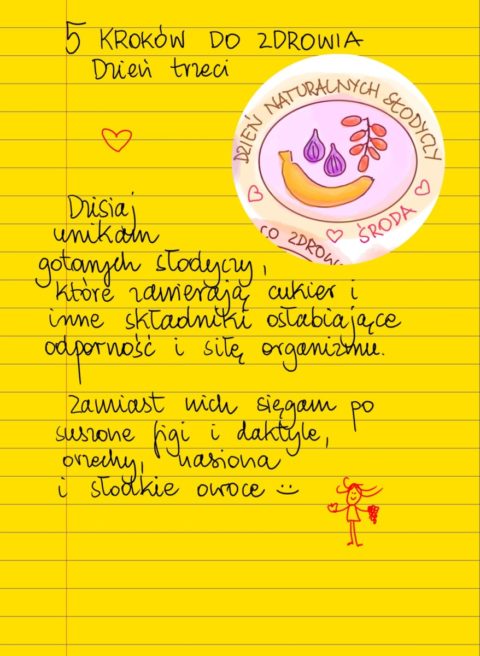 5 KROKÓW DO ZDROWIA
Dzień trzeci
DZIEŃ NATURALNYCH SŁODYCZY
ŚRODA
CO ZDROW
Dzisiaj
unikam
gotowych słodyczy,
które zawierają cukier i
inne składniki osłabiające
odporność i siłę organizmu.
Zamiast nich sięgam po
suszone figi i daktyle,
orzechy, nasiona
i słodkie owoce